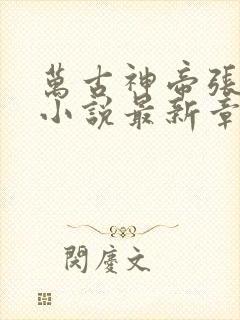 萬古神帝張
小說最新章
閔慶文